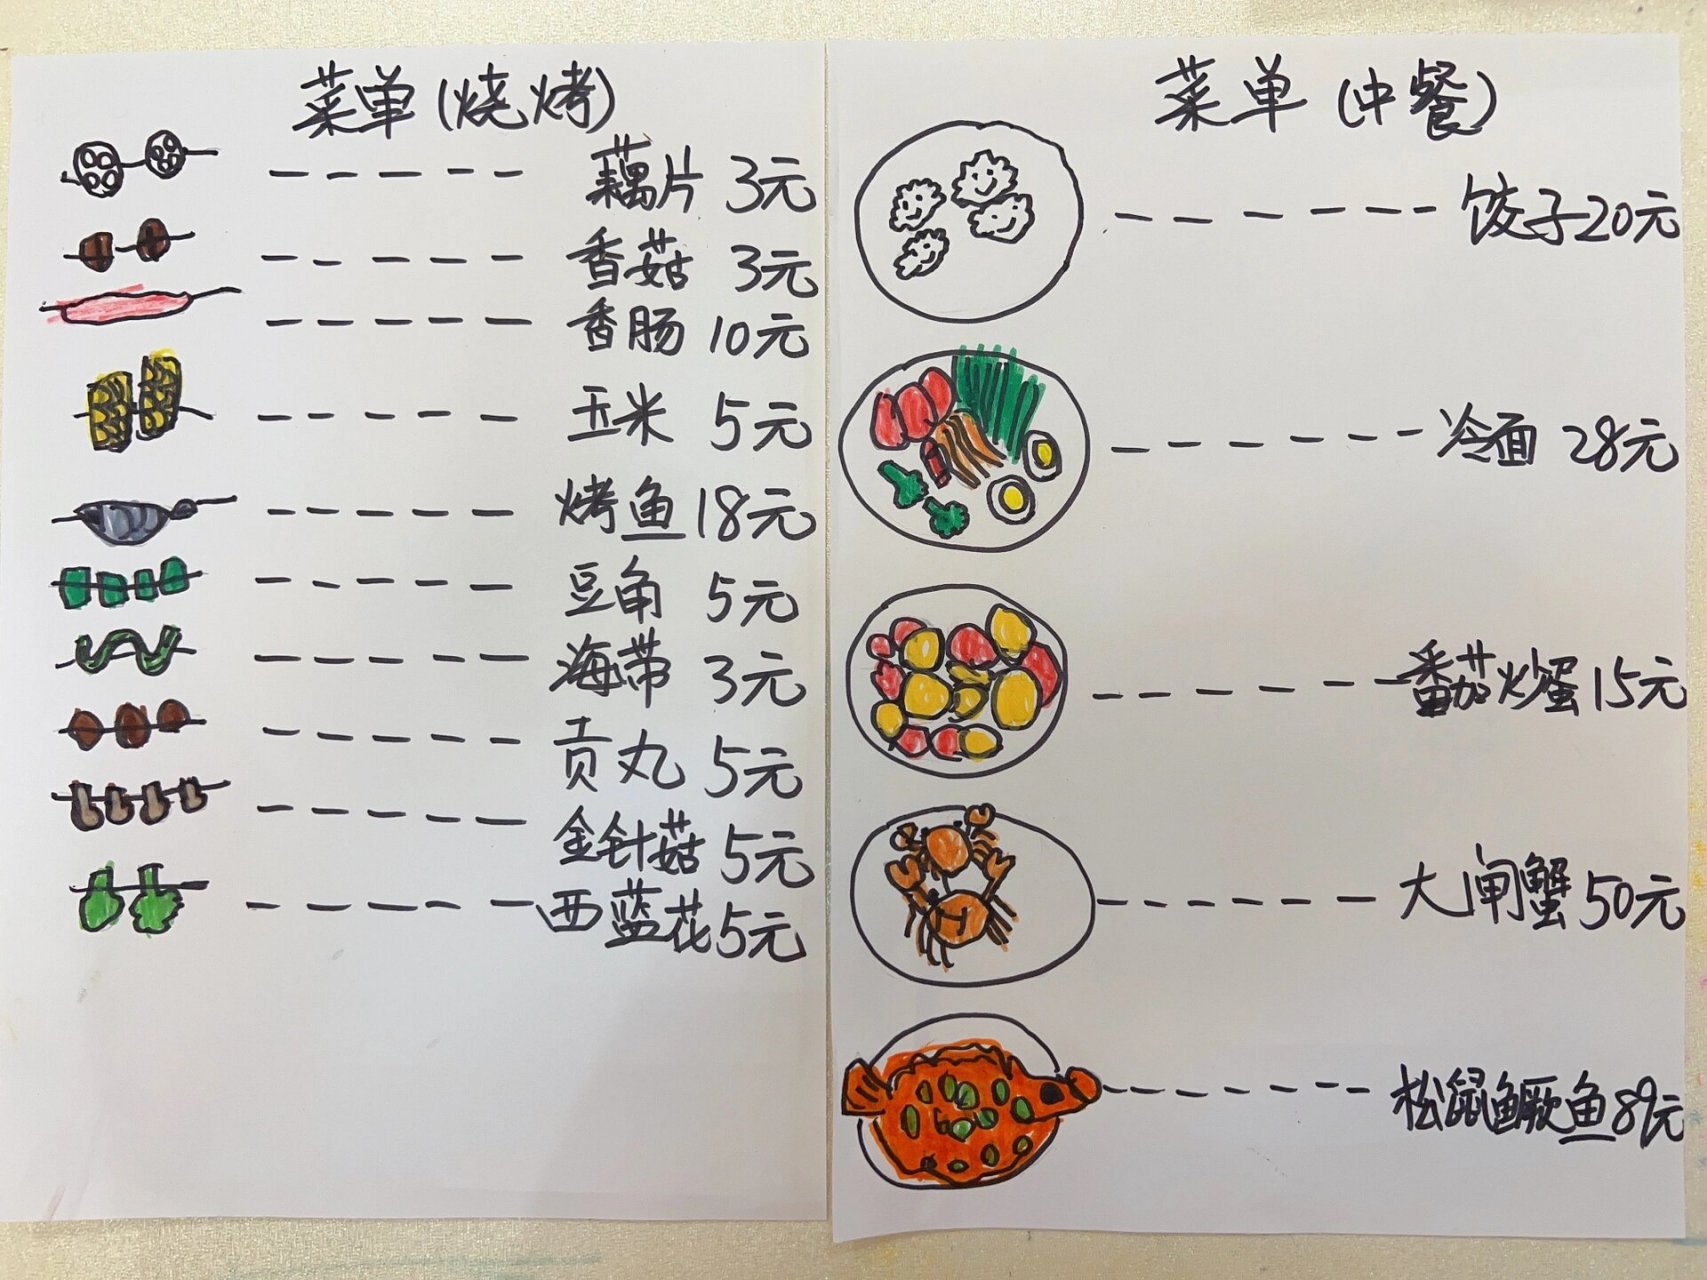 菜单(烧烤)
藕片 3元
香菇 3元
香肠 10元
玉米 5元
烤鱼 18元
豆角 5元
海带 3元
贡丸 5元
金针菇 5元
西蓝花 5元
菜单(中餐)
饺子 20元
冷面 28元
番茄炒蛋 15元
大闸蟹 50元
松鼠鳜鱼 89元